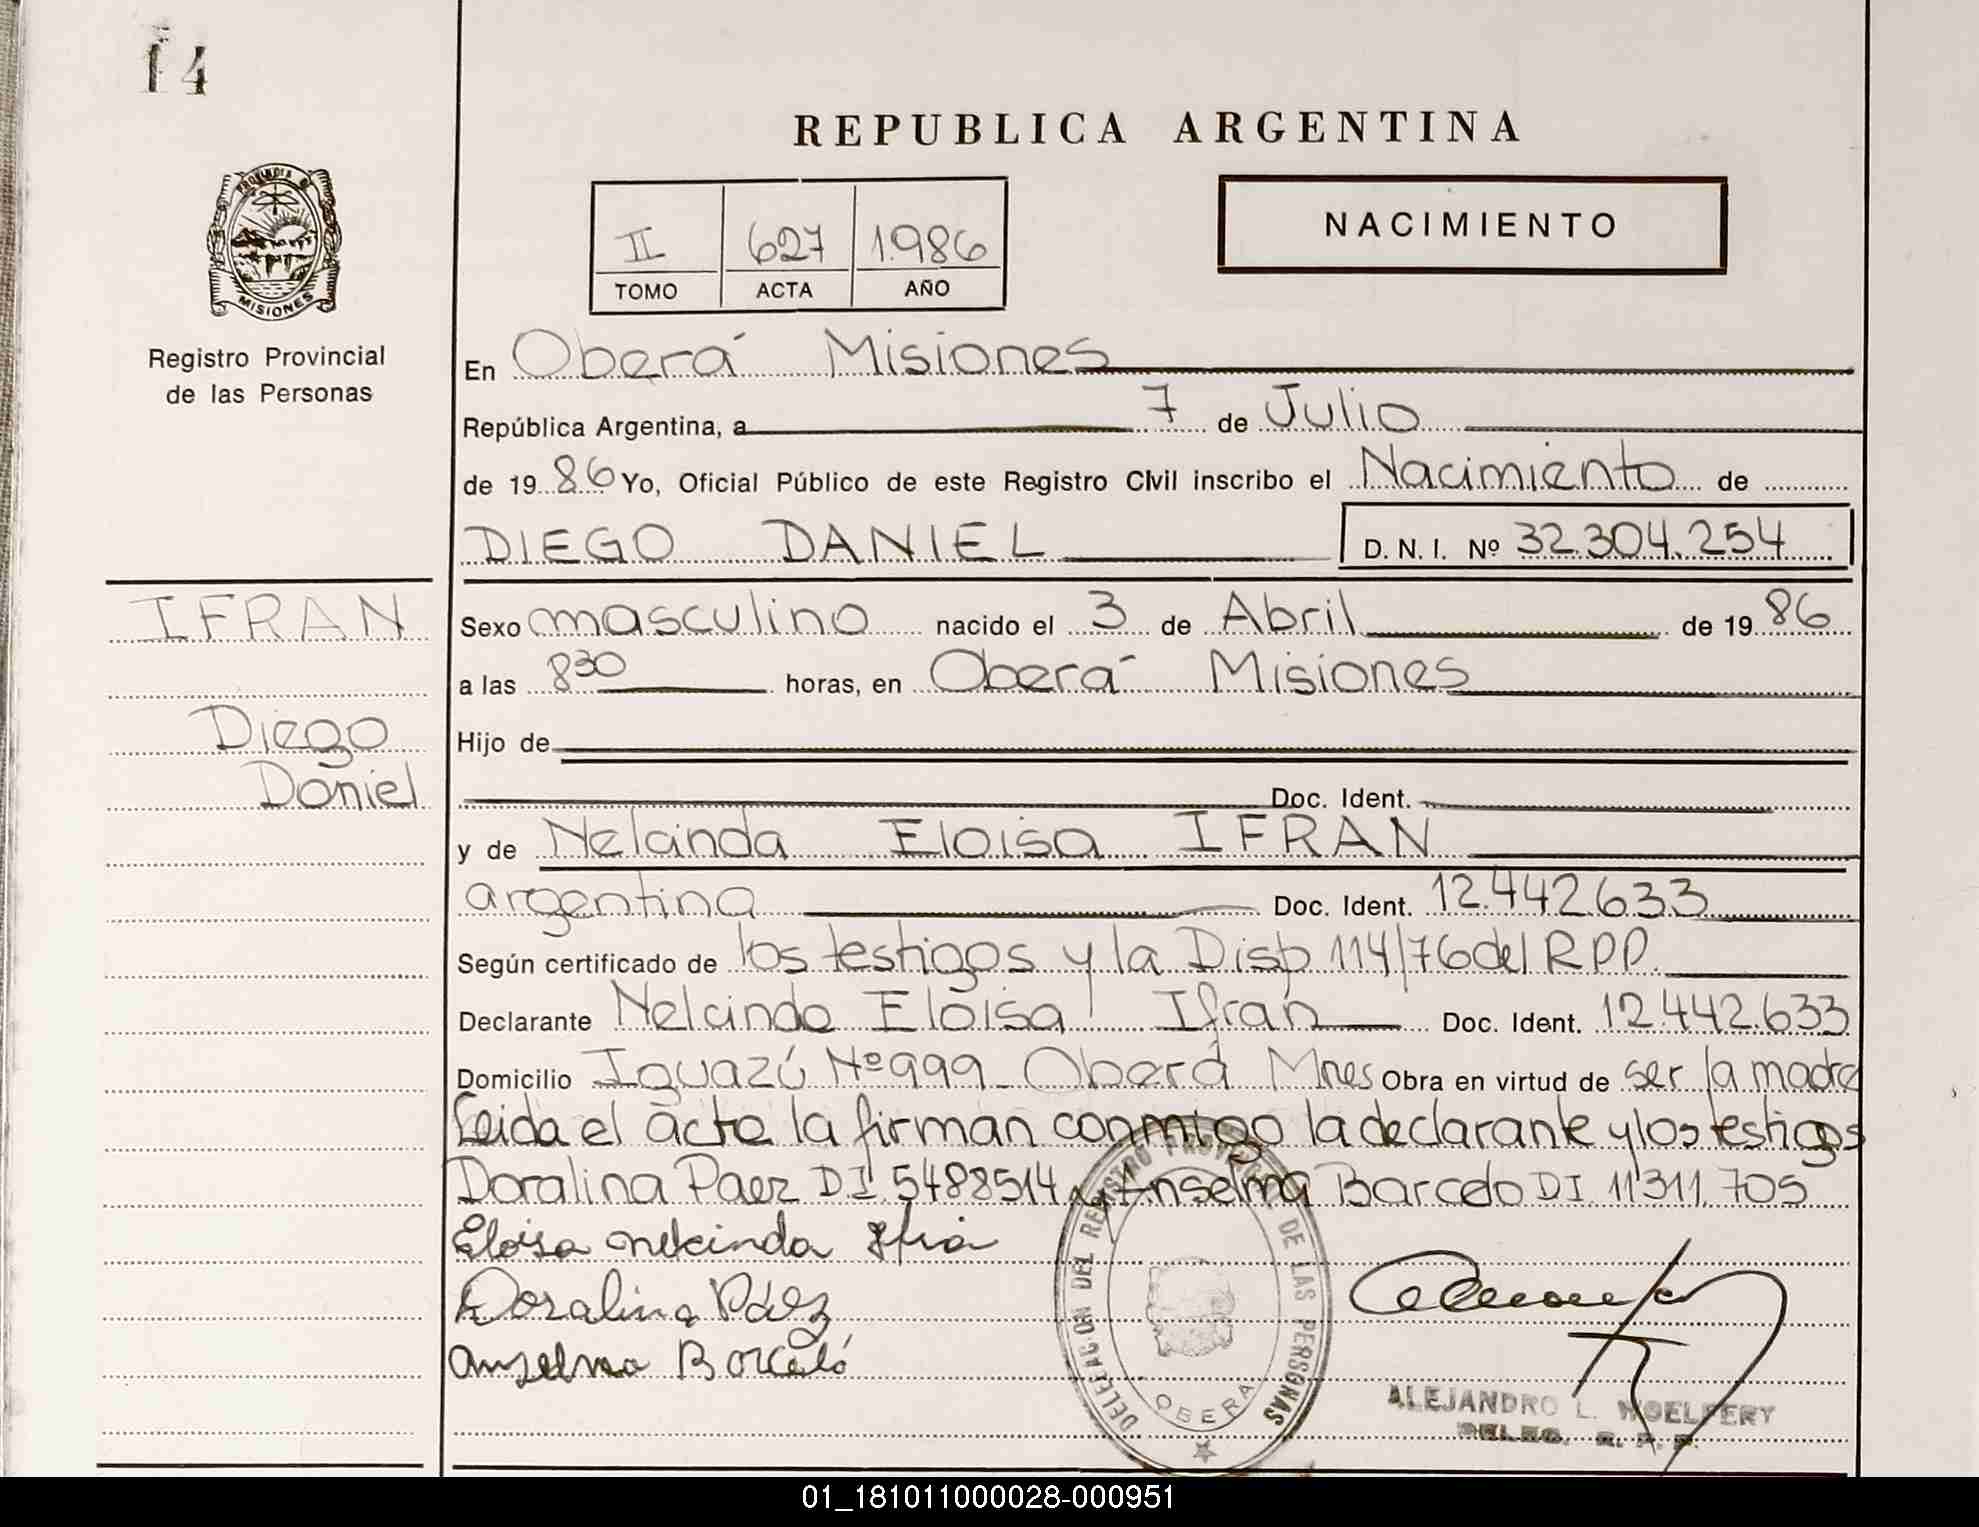 14
REPUBLICA ARGENTINA
PROVINCIA DE
MISIONES
Registro Provincial
de las Personas
II 627 1986
TOMO ACTA AÑO
NACIMIENTO
En Oberá Misiones
República Argentina, a 7 de Julio
de 19 86 Yo, Oficial Público de este Registro Civil inscribo el Nacimiento de
DIEGO DANIEL D. N. I. Nº 32.304.254
IFRAN
Diego
Daniel
Sexo masculino nacido el 3 de Abril de 19 86
a las 8 30 horas, en Oberá Misiones
Hijo de
Doc. Ident.
y de Nelcinda Eloisa IFRAN
argentina Doc. Ident. 12.442.633
Según certificado de los testigos y la Disp 114/76 del R.P.P.
Declarante Nelcinda Eloisa Ifran Doc. Ident. 12.442.633
Domicilio Iguazú Nº 999 Oberá Mnes Obra en virtud de ser la madre
Leida el acta la firman conmigo la declarante y los testigos
Doralina Paez DI 5488514 y Anselma Barcelo DI 11311.705
Eloisa Nelcinda Ifran
Doralina Páez
Anselma Barceló
DELEGACION DEL REGISTRO PROVINCIAL DE LAS PERSONAS
OBERA
ALEJANDRO L. WOELFERY
DELEG. R. P. P.
01_181011000028-000951